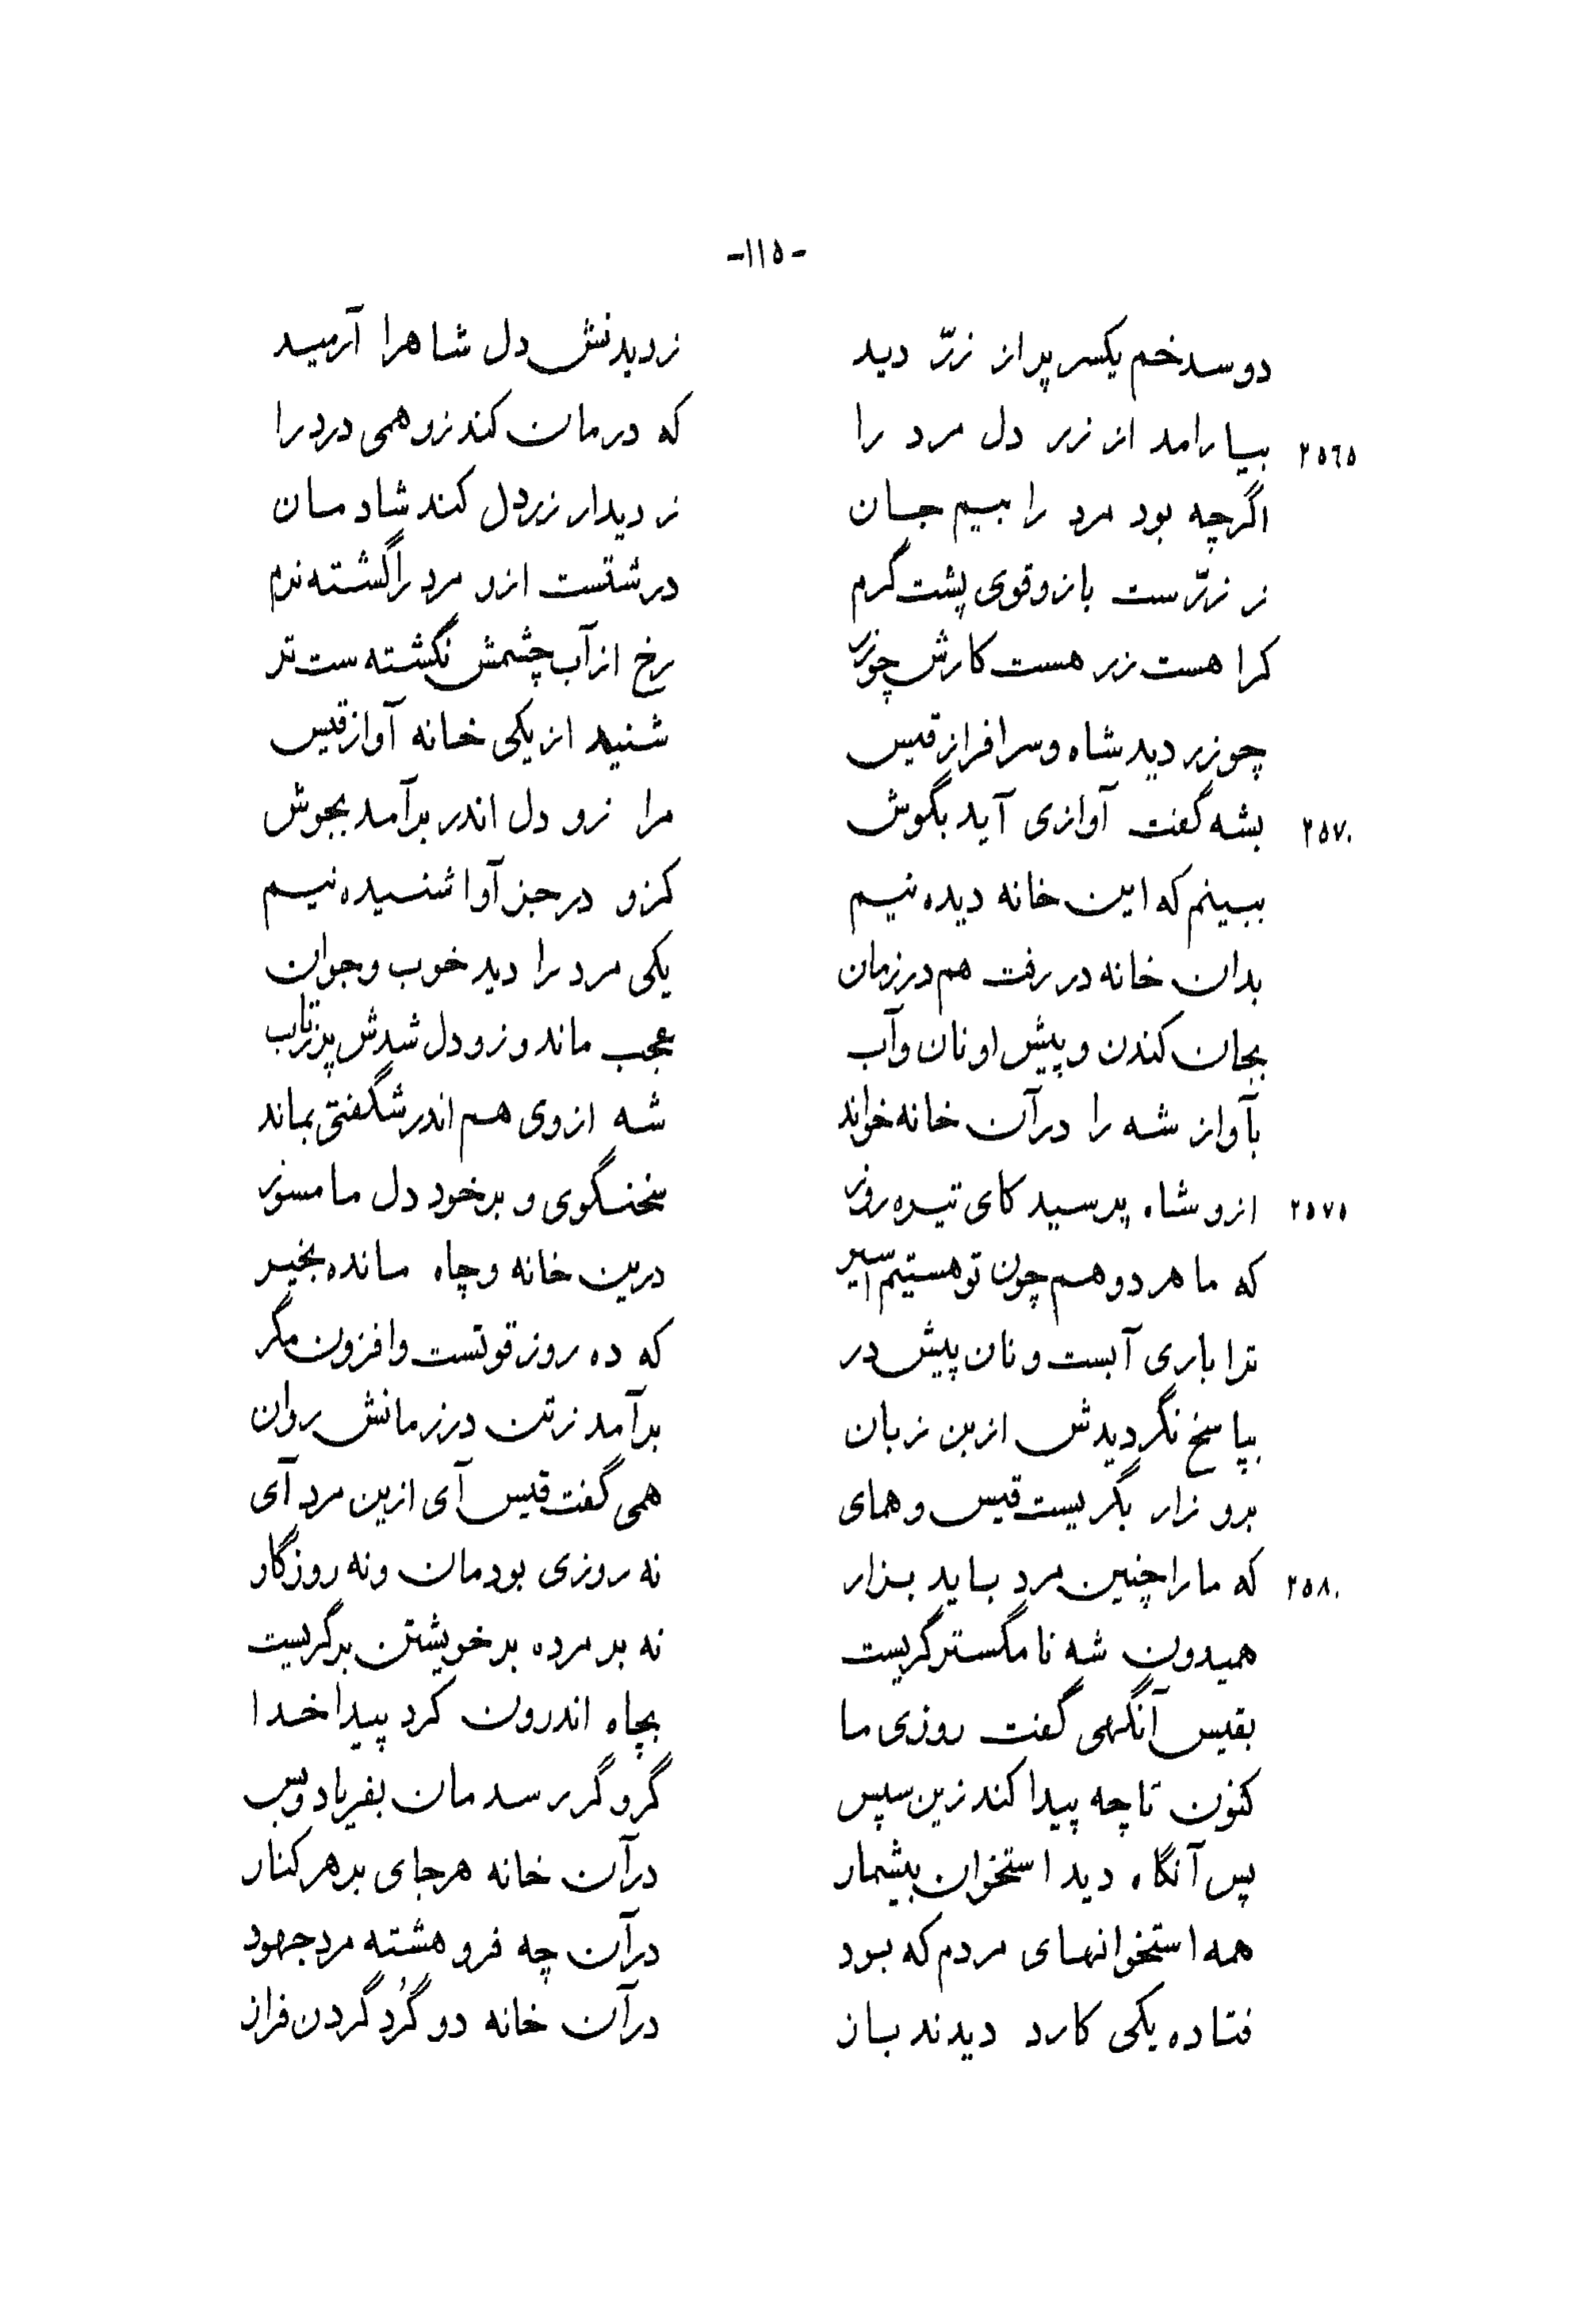 -۱۱۵-
دوسد خم یکسر پر از زرّ دید زدیدنش دل شاهرا آرمید
۲۵۶۵ بیارامد از زر دل مرد را که درمان کند زو همی درد را
اگرچه بود مرد را بیم جان ز دیدار زر دل کند شادمان
ز زرّست بازو قوی پشت گرم درشتست ازو مرد را گشته نرم
کرا هست زر هست کارش چو زر رخ از آب چشمش نگشته ست تر
چو زر دید شاه و سرافراز قیس شنید از یکی خانه آواز قیس
۲۵۷۰ بشه گفت آوازی آید بگوش مرا زو دل اندر برآمد بجوش
ببینم که این خانه دیده نیم کزو در جز آوا شنیده نیم
بدان خانه در رفت هم در زمان یکی مرد را دید خوب و جوان
بجان کندن و پیش او نان و آب عجب ماند و زو دل شدش پر ز تاب
بآواز شه را در آن خانه خواند شه از وی هم اندر شگفتی بماند
۲۵۷۵ ازو شاه پرسید کای تیره روز سخنگوی و بر خود دل ما مسوز
که ما هر دو هم چون تو هستیم اسیر درین خانه و چاه مانده بخیر
ترا باری آبست و نان پیش در که ده روز قوتست و افزون مگر
بپاسخ نگردیدش از بن زبان برآمد ز تن در زمانش روان
برو زار بگریست قیس و همای همی گفت قیس آی ازین مرد آی
۲۵۸۰ که ما را چنین مرد باید بزار نه روزی بودمان و نه روزگار
همیدون شه نامگستر گریست نه بر مرده بر خویشتن برگریست
بقیس آنگهی گفت روزی ما بچاه اندرون کرد پیدا خدا
کنون تا چه پیدا کند زین سپس گروگر رسدمان بفریاد و بس
پس آنگاه دید استخوان بیشمار در آن خانه هر جای بر هر کنار
همه استخوانهای مردم که بود در آن چه فرو هشته مرد جهود
فتاده یکی کارد دیدند باز در آن خانه دو گُرد گردن فراز